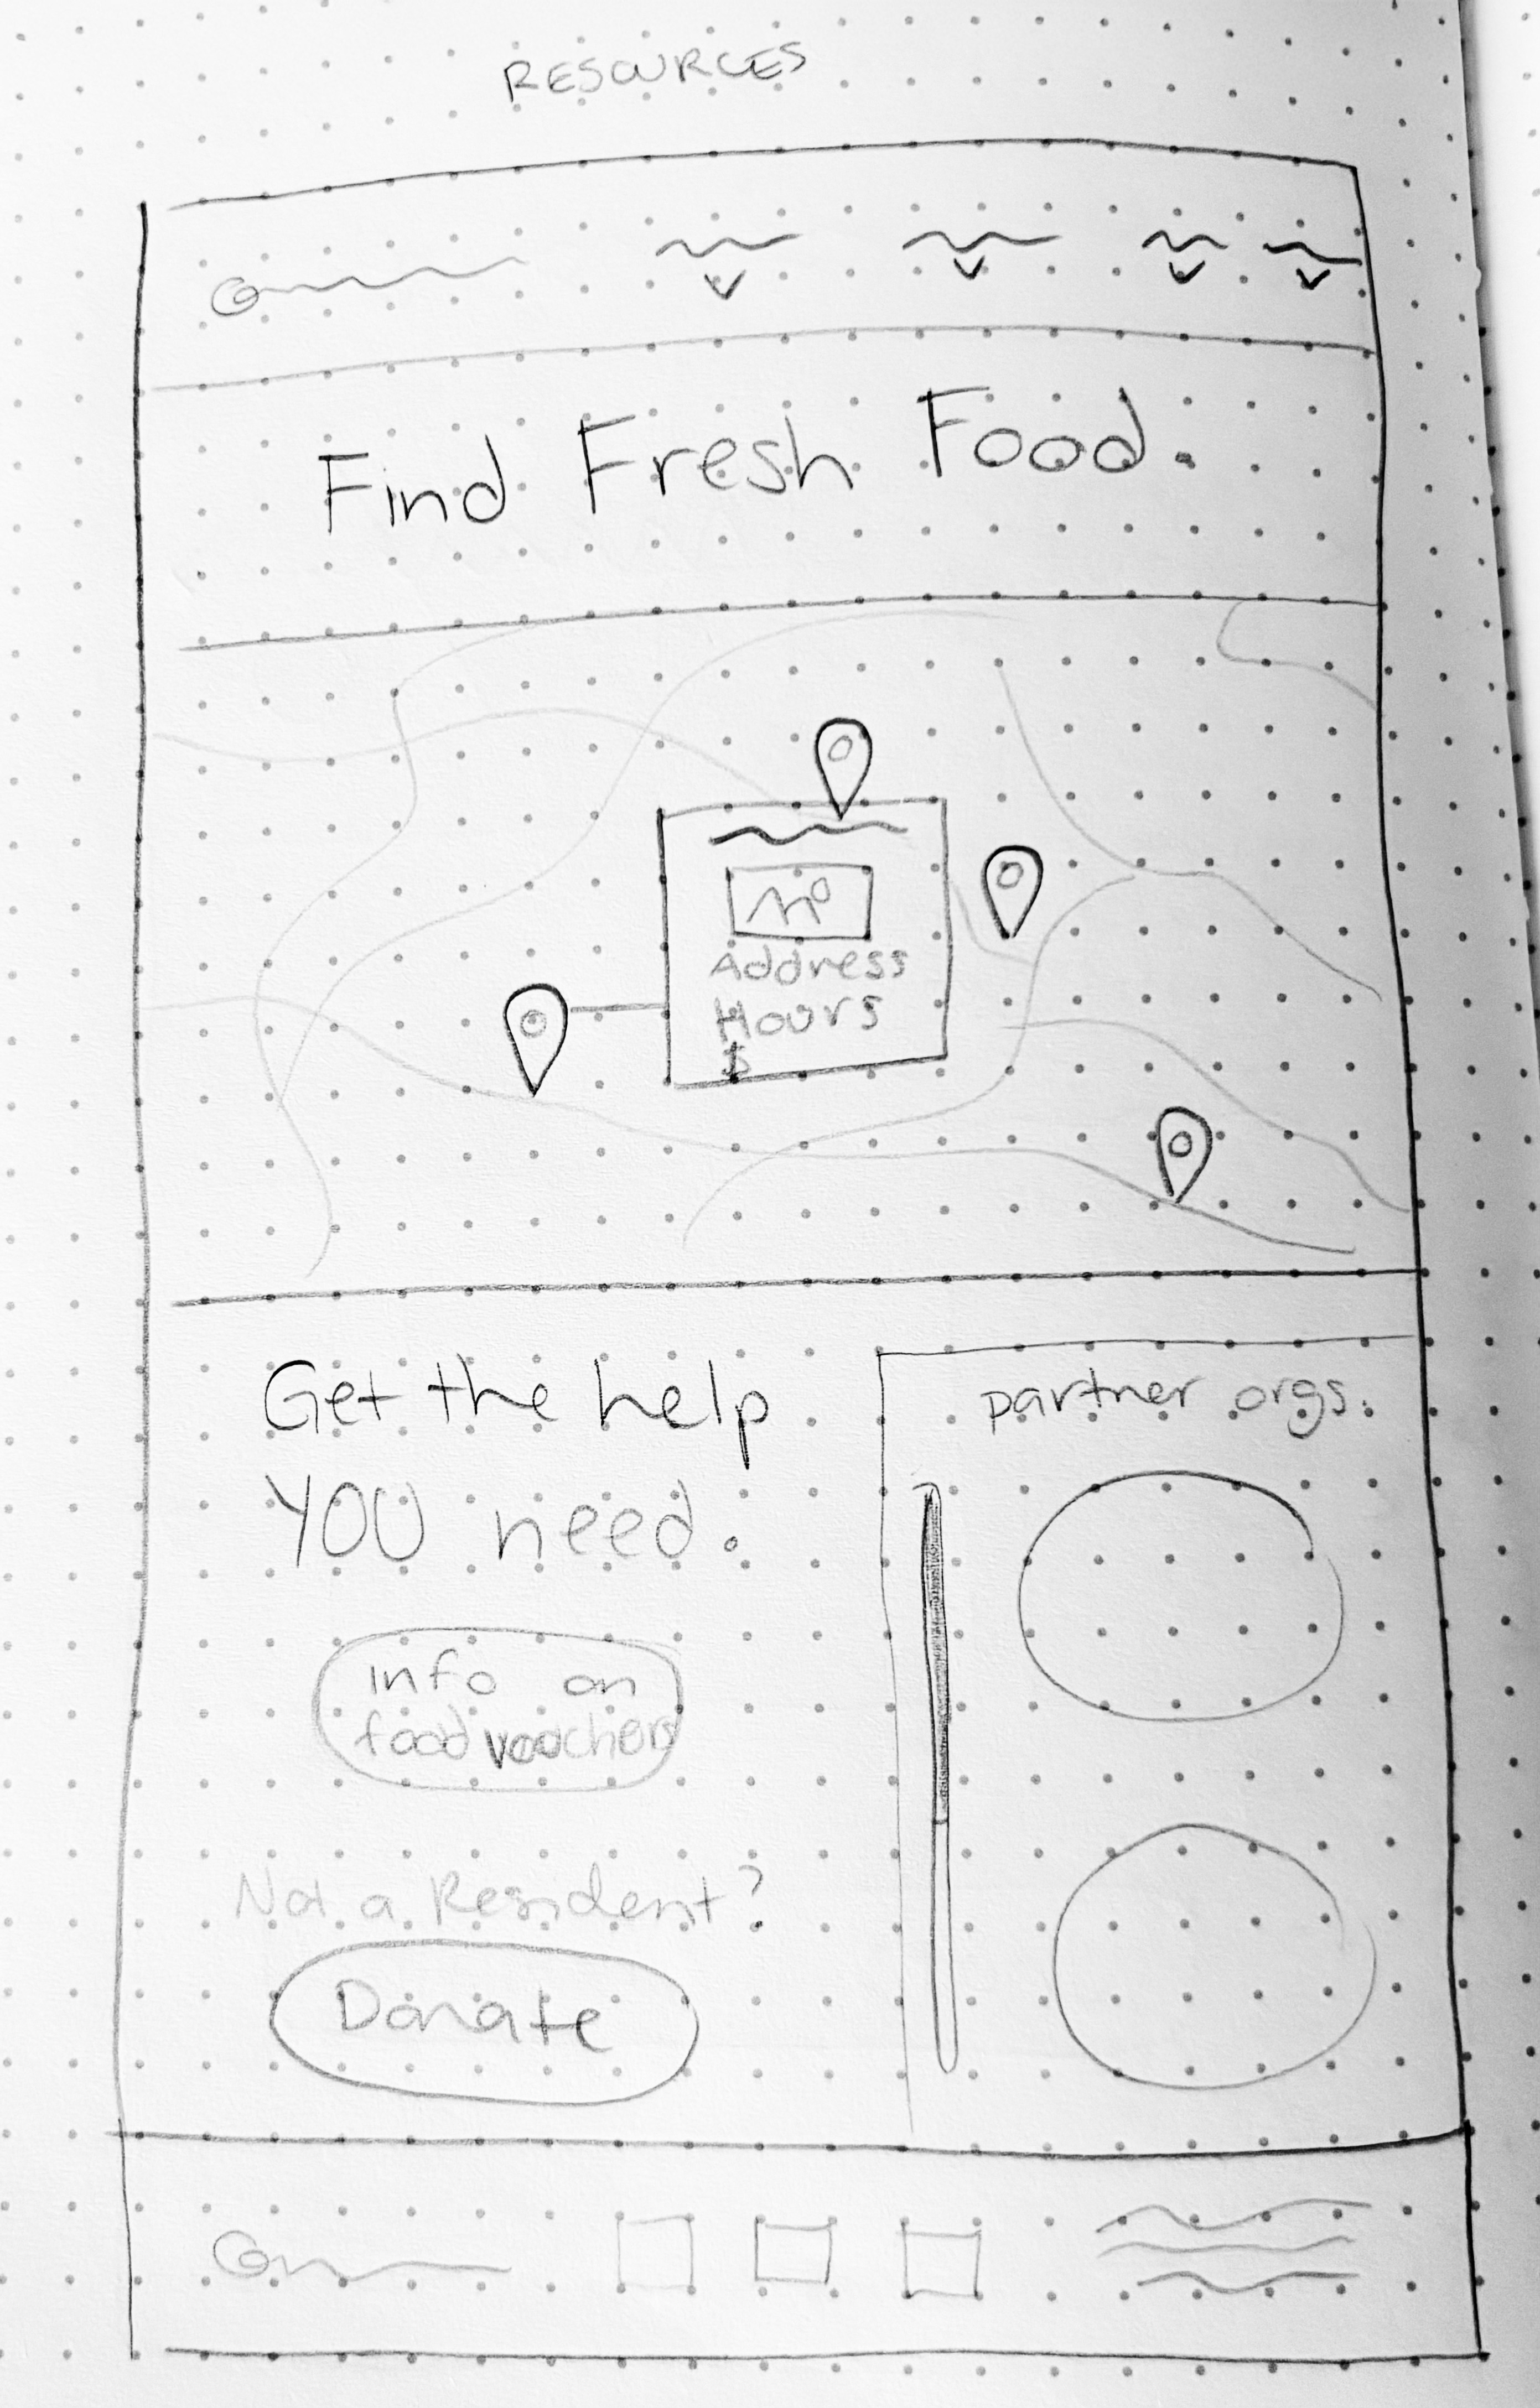 RESOURCES
Find Fresh Food.
Address
Hours
$
Get the help
YOU need.
partner orgs.
info on
food vouchers
Not a Resident?
Donate